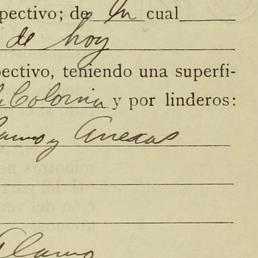 pectivo; de un cual
de hoy
pectivo, teniendo una superfi-
Colonia y por linderos:
y Anexas
Alamo